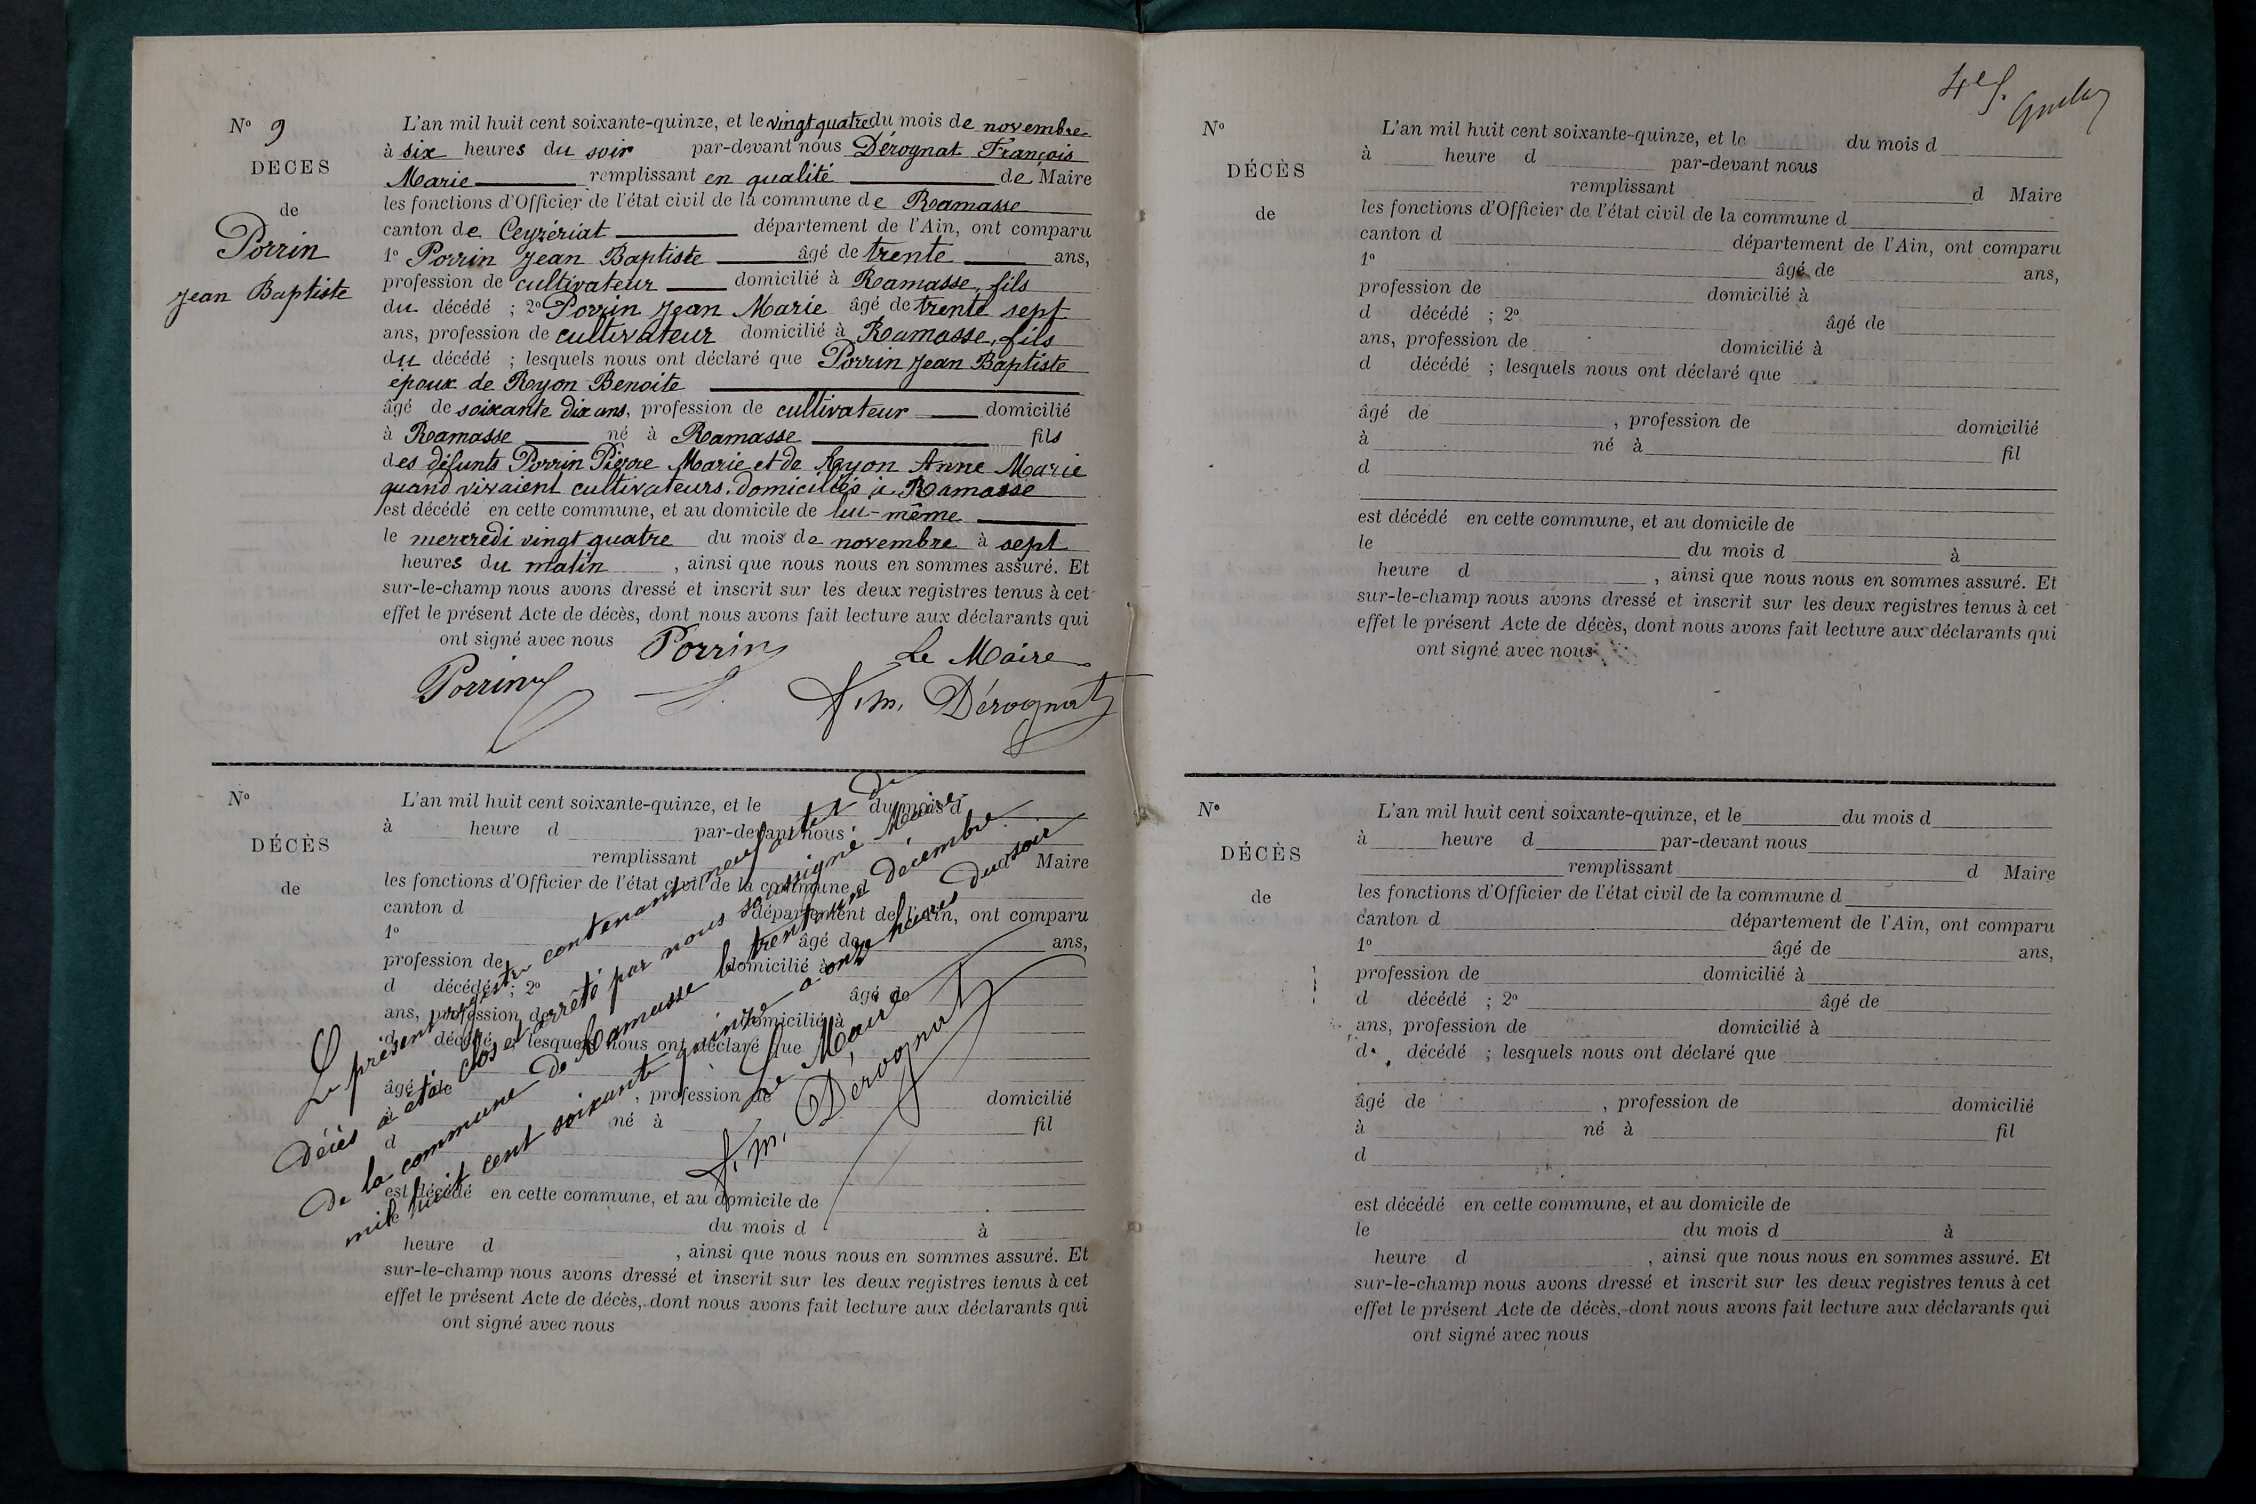 N° 9
DÉCÈS
de
Porrin
Jean Baptiste
L'an mil huit cent soixante-quinze, et le vingt quatre du mois de novembre
à six heures du soir par-devant nous Dérognat François
Marie remplissant en qualité de Maire
les fonctions d'Officier de l'état civil de la commune de Ramasse
canton de Ceyzériat département de l'Ain, ont comparu
1° Porrin Jean Baptiste âgé de trente ans,
profession de cultivateur domicilié à Ramasse, fils
du décédé ; 2° Porrin Jean Marie âgé de trente sept
ans, profession de cultivateur domicilié à Ramasse, fils
du décédé ; lesquels nous ont déclaré que Porrin Jean Baptiste
époux de Royon Benoite
âgé de soixante dix ans, profession de cultivateur domicilié
à Ramasse né à Ramasse fils
des défunts Porrin Pierre Marie et de Royon Anne Marie
quand vivaient cultivateurs domiciliés à Ramasse
est décédé en cette commune, et au domicile de lui-même
le mercredi vingt quatre du mois de novembre à sept
heures du matin , ainsi que nous nous en sommes assuré. Et
sur-le-champ nous avons dressé et inscrit sur les deux registres tenus à cet
effet le présent Acte de décès, dont nous avons fait lecture aux déclarants qui
ont signé avec nous Porrin Le Maire
Porrin f.m. Dérognat
N°
DÉCÈS
de
L'an mil huit cent soixante-quinze, et le du mois d
à heure d par-devant nous
remplissant d Maire
les fonctions d'Officier de l'état civil de la commune d
canton d département de l'Ain, ont comparu
1° âgé de ans,
profession de domicilié à
d décédé ; 2° âgé de
ans, profession de domicilié à
d décédé ; lesquels nous ont déclaré que
âgé de , profession de domicilié
à né à fil
d
est décédé en cette commune, et au domicile de
le du mois d à
heure d , ainsi que nous nous en sommes assuré. Et
sur-le-champ nous avons dressé et inscrit sur les deux registres tenus à cet
effet le présent Acte de décès, dont nous avons fait lecture aux déclarants qui
ont signé avec nous
Le présent registre contenant neuf actes de
décès a été clos et arrêté par nous soussigné Maire
de la commune de Ramasse le trente un décembre
mil huit cent soixante quinze à onze heures du soir
Le Maire
f.m. Dérognat
4e f.
N°
DÉCÈS
de
L'an mil huit cent soixante-quinze, et le du mois d
à heure d par-devant nous
remplissant d Maire
les fonctions d'Officier de l'état civil de la commune d
canton d département de l'Ain, ont comparu
1° âgé de ans,
profession de domicilié à
d décédé ; 2° âgé de
ans, profession de domicilié à
d décédé ; lesquels nous ont déclaré que
âgé de , profession de domicilié
à né à fil
d
est décédé en cette commune, et au domicile de
le du mois d à
heure d , ainsi que nous nous en sommes assuré. Et
sur-le-champ nous avons dressé et inscrit sur les deux registres tenus à cet
effet le présent Acte de décès, dont nous avons fait lecture aux déclarants qui
ont signé avec nous
N°
DÉCÈS
de
L'an mil huit cent soixante-quinze, et le du mois d
à heure d par-devant nous
remplissant d Maire
les fonctions d'Officier de l'état civil de la commune d
canton d département de l'Ain, ont comparu
1° âgé de ans,
profession de domicilié à
d décédé ; 2° âgé de
ans, profession de domicilié à
d décédé ; lesquels nous ont déclaré que
âgé de , profession de domicilié
à né à fil
d
est décédé en cette commune, et au domicile de
le du mois d à
heure d , ainsi que nous nous en sommes assuré. Et
sur-le-champ nous avons dressé et inscrit sur les deux registres tenus à cet
effet le présent Acte de décès, dont nous avons fait lecture aux déclarants qui
ont signé avec nous